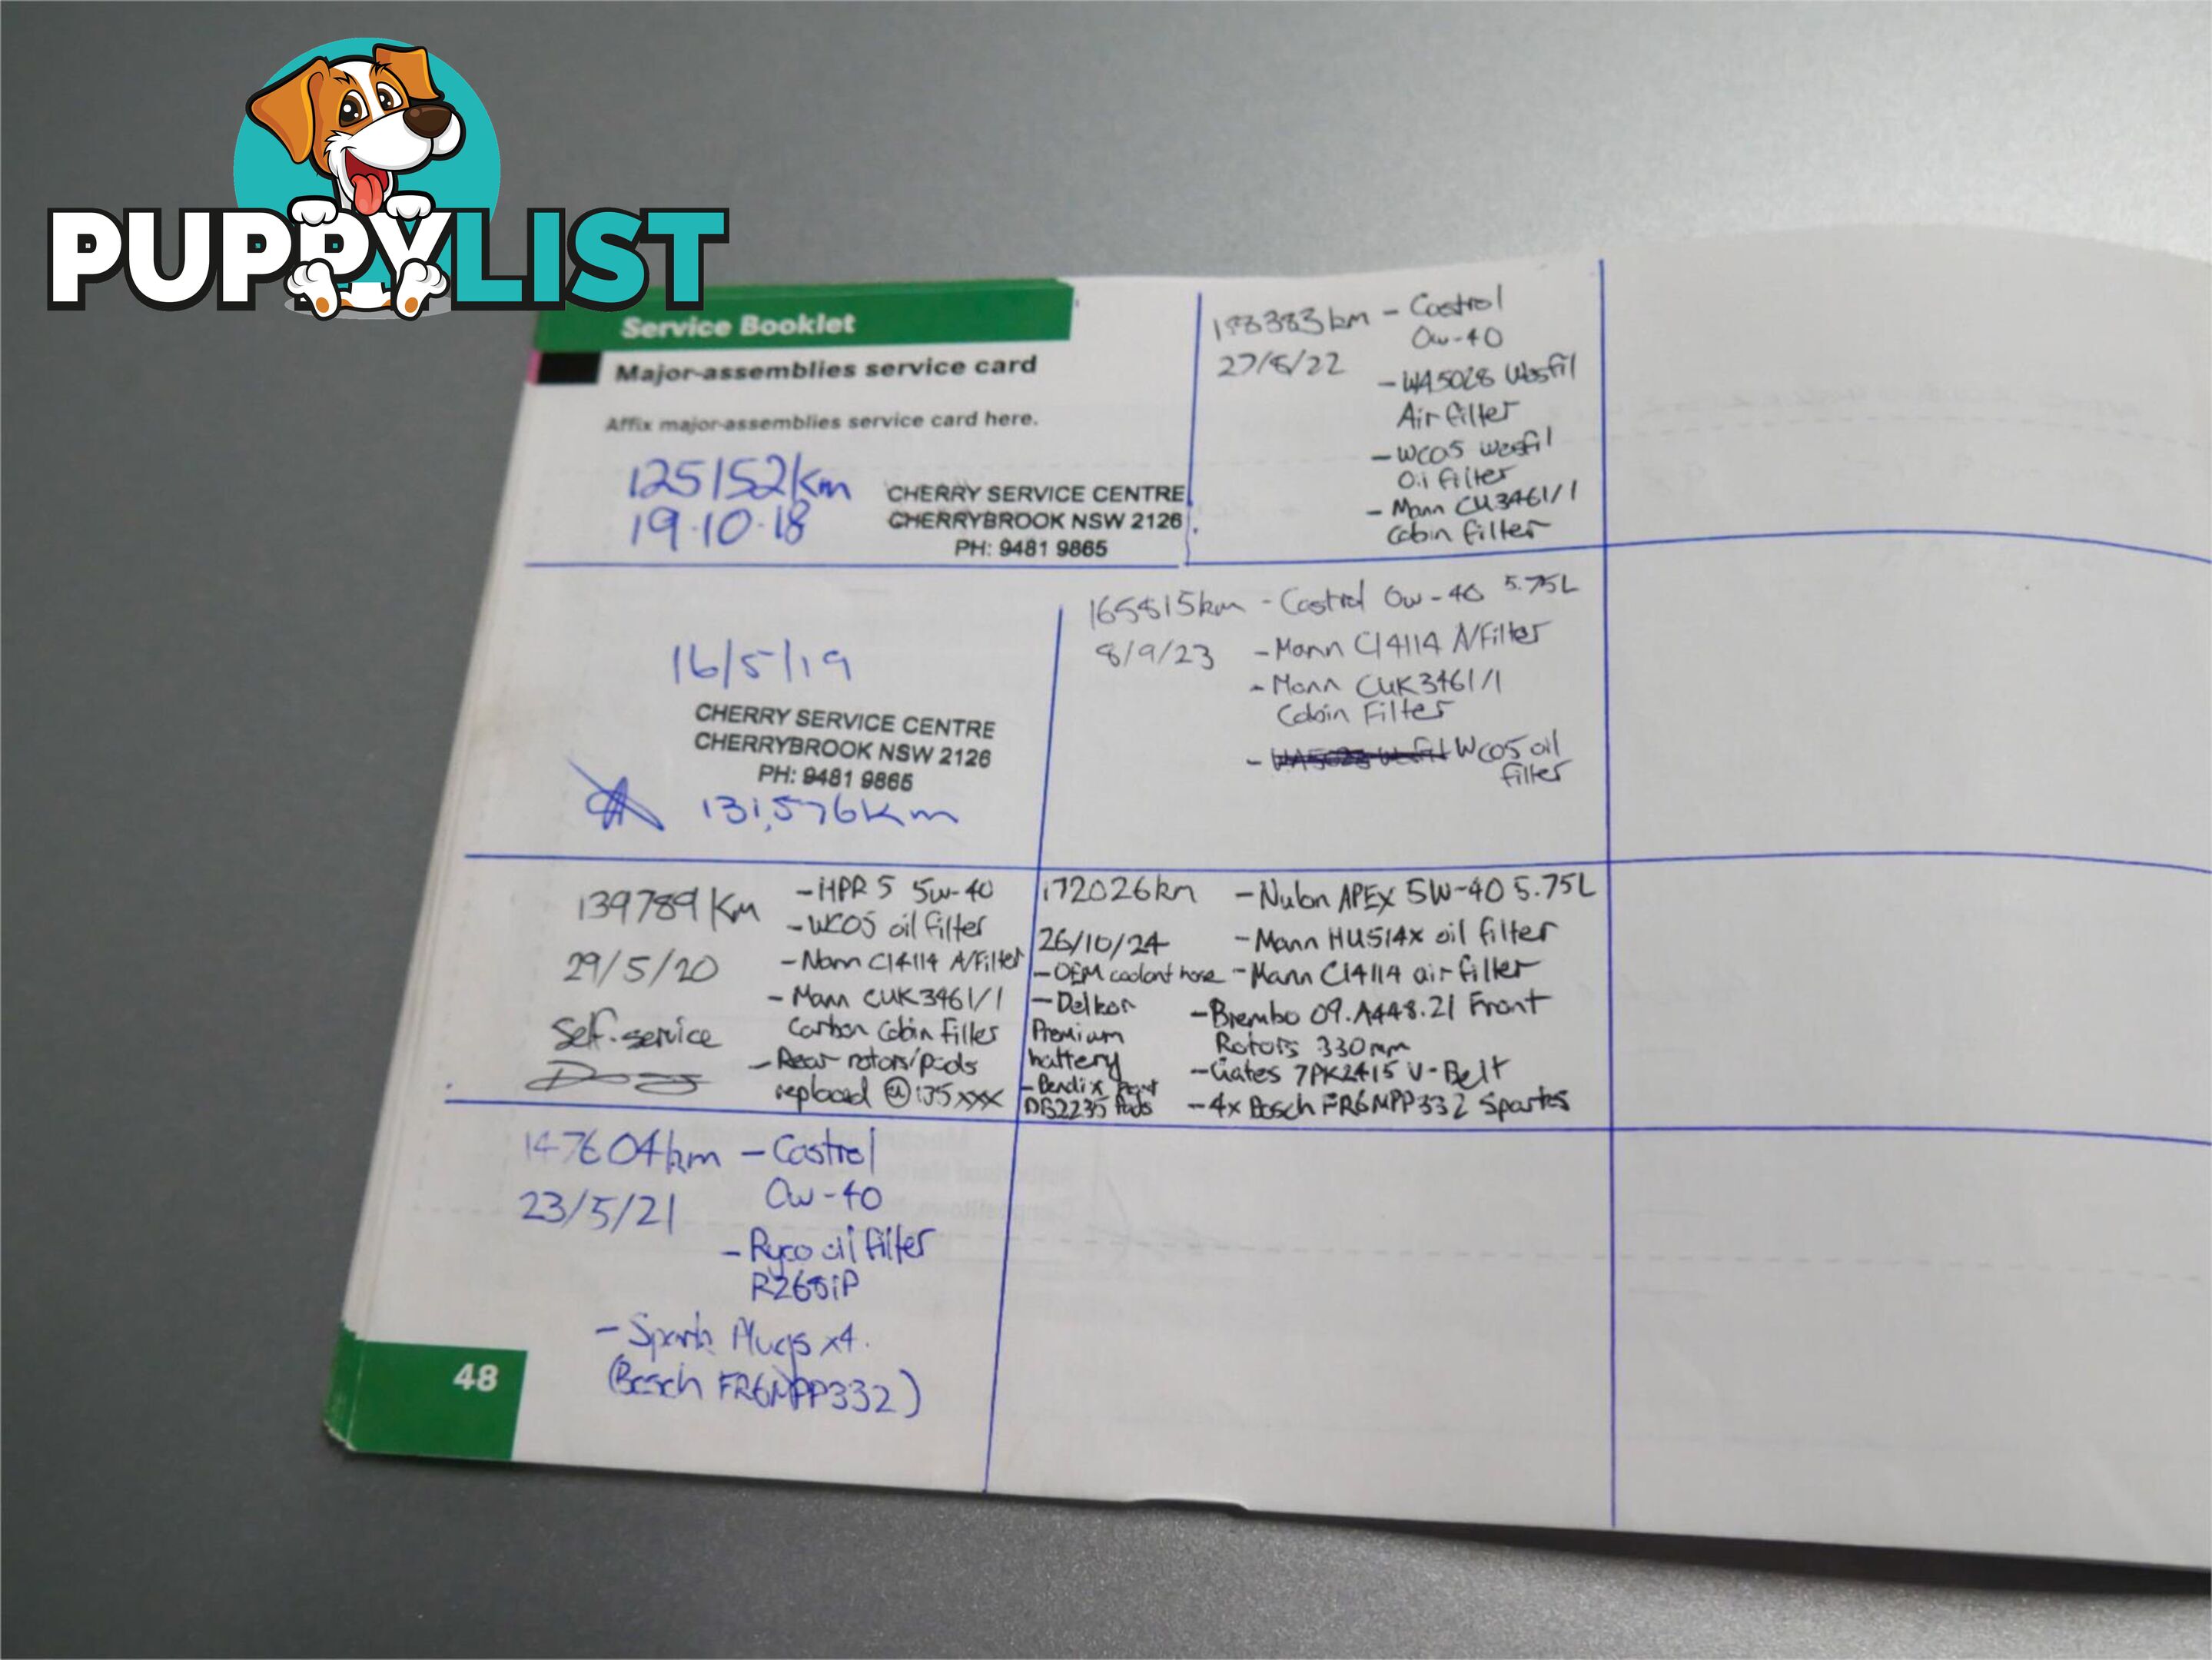 PUPPYLIST
Service Booklet
Major-assemblies service card
Affix major-assemblies service card here.
125152km
19.10.18
CHERRY SERVICE CENTRE
CHERRYBROOK NSW 2126
PH: 9481 9865
16/5/19
CHERRY SERVICE CENTRE
CHERRYBROOK NSW 2126
PH: 9481 9865
131,576Km
139789 Km
29/5/20
Self-service
- HPR 5 5w-40
- WCO5 oil filter
- Mann C14114 A/Filter
- Mann CUK3461/1
Carbon Cabin Filter
- Rear rotors/pads
replaced @ 135xxx
147604km
23/5/21
- Castrol
0w-40
- Ryco oil filter
R2681P
- Spark Plugs x4.
(Bosch FR6MPP332)
158383km
27/8/22
- Castrol
0w-40
- WA5028 Wesfil
Air filter
- WCO5 wesfil
Oil filter
- Mann CU3461/1
Cabin filter
165815km
8/9/23
- Castrol 0w-40 5.75L
- Mann C14114 A/Filter
- Mann CUK3461/1
Cabin Filter
- WCO5 oil
filter
172026km
26/10/24
- OEM coolant hose
- Delkor
Premium
battery
- Bendix Front
DB2235 Pads
- Nulon APEX 5W-40 5.75L
- Mann HU514x oil filter
- Mann C14114 air filter
- Brembo 09.A448.21 Front
Rotors 330mm
- Gates 7PK2415 V-Belt
- 4x Bosch FR6MPP332 Sparks
48